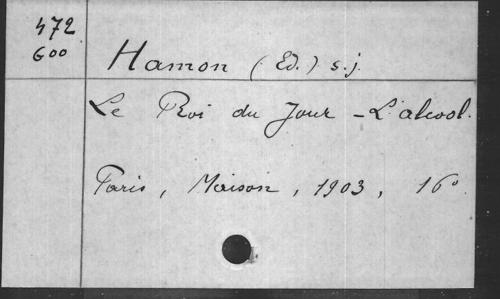 472
600
Hamon (Ed.) s.j.
Le Roi du Jour - L'alcool.
Paris, Maison, 1903, 16°